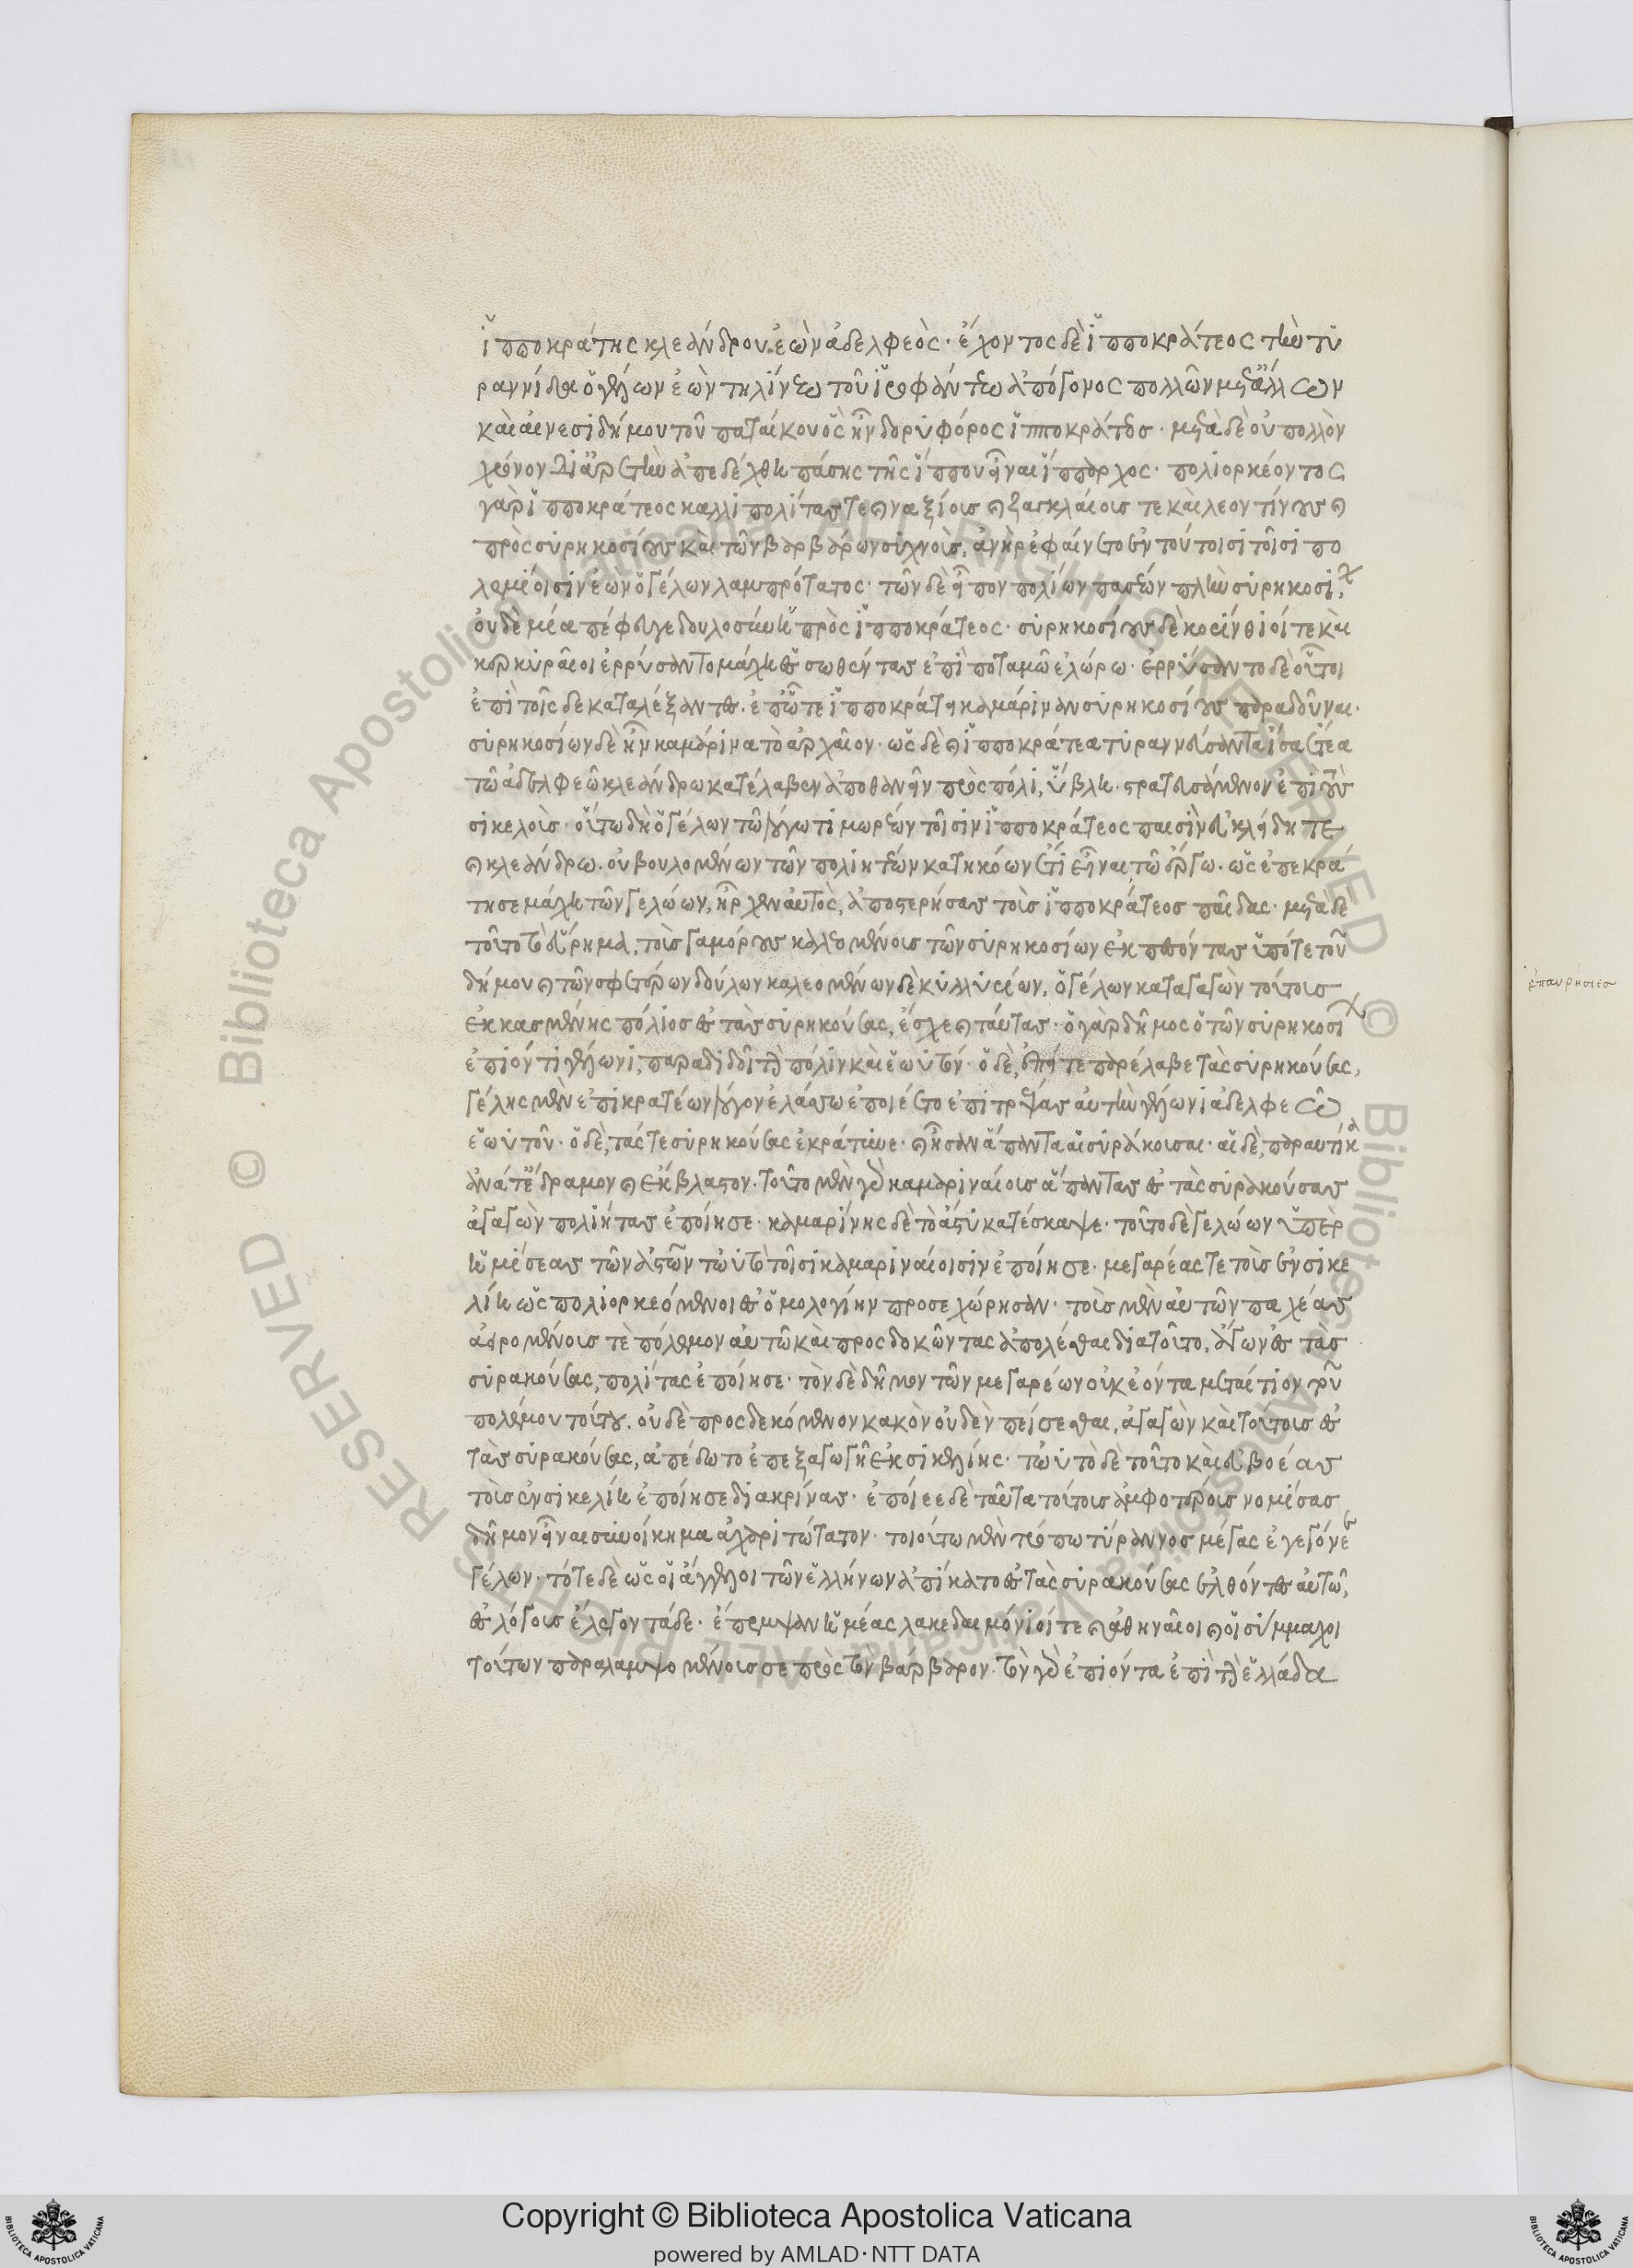 ἱπποκράτης κλεάνδρου ἐὼν ἀδελφεός· ἔχοντος δὲ ἱπποκράτεος τὴν τυ
ραννίδα ὁ γέλων ἐὼν τηλίνεω τοῦ ἱροφάντεω ἀπόγονος πολλῶν μετ' ἄλλων
καὶ αἰνεσιδήμου τοῦ παταίκου ὃς ἦν δορυφόρος ἱπποκράτεος· μετὰ δὲ οὐ πολλὸν
χρόνον δι' ἀρετὴν ἀπεδέχθη πάσης τῆς ἵππου εἶναι ἵππαρχος· πολιορκέοντος
γὰρ ἱπποκράτεος καλλιπολίτας τε καὶ ναξίους καὶ ζαγκλαίους τε καὶ λεοντίνους καὶ
πρὸς συρηκοσίους καὶ τῶν βαρβάρων συχνοὺς, ἀνὴρ ἐφαίνετο ἐν τούτοισι τοῖσι πο
λεμίοισιν ἐὼν ὁ γέλων λαμπρότατος· τῶν δὲ εἶπον πολίων πασέων πλὴν συρηκοσίων
οὐδεμία πέφευγε δουλοσύνην πρὸς ἱπποκράτεος· συρηκοσίους δὲ κορίνθιοί τε καὶ
κερκυραῖοι ἐρρύσαντο μάχη ἑσσωθέντας ἐπὶ ποταμῶ ἐλώρω· ἐρρύσαντο δὲ οὗτοι
ἐπὶ τοῖσδε καταλλάξαντες· ἐπ' ὧτε ἱπποκράτει καμάριναν συρηκοσίους παραδοῦναι·
συρηκοσίων δὲ ἦν καμάρινα τὸ ἀρχαῖον· ὡς δὲ καὶ ἱπποκράτεα τυραννεύσαντα ἴσα ἔτεα
τῶ ἀδελφεῶ κλεάνδρω κατέλαβεν ἀποθανεῖν πρὸς πόλι ὕβλη· στρατευσάμενον ἐπὶ τοὺς
σικελούς· οὕτω δὴ ὁ γέλων τῶ λόγω τιμωρέων τοῖσιν ἱπποκράτεος παισὶν εὐκλείδη τε
καὶ κλεάνδρω· οὐ βουλομένων τῶν πολιητέων κατηκόων ἔτι εἶναι, τῶ ἔργω· ὡς ἐπεκρά
τησε μάχη τῶν γελώων, ἦρχεν αὐτὸς, ἀποστερήσας τοὺς ἱπποκράτεος παῖδας· μετὰ δὲ
τοῦτο τὸ εὕρημα, τοὺς γαμόρους καλεομένους τῶν συρηκοσίων ἐκπεσόντας ὑπό τε τοῦ
δήμου καὶ τῶν σφετέρων δούλων καλεομένων δὲ κυλλυρίων, ὁ γέλων καταγαγὼν τούτους
ἐκ κασμένης πόλιος ἐς τὰς συρηκούσας, ἔσχε καὶ ταύτας· ὁ γὰρ δῆμος ὁ τῶν συρηκοσίων
ἐπιόντι γέλωνι, παραδιδοῖ τὴν πόλιν καὶ ἑωυτόν· ὁ δὲ, ἐπείτε παρέλαβε τὰς συρηκούσας,
γέλης μὲν ἐπικρατέων λόγον ἐλάσσω ἐποιέετο ἐπιτρέψας αὐτὴν ἱέρωνι ἀδελφεῶ
ἑωυτοῦ· ὁ δὲ, τάς τε συρηκούσας ἐκράτυνε· καὶ ἦσαν ἅπαντα αἱ συράκουσαι· αἱ δὲ, παραυτίκα
ἀνά τ' ἔδραμον καὶ ἐκβλαστον. τοῦτο μὲν γὰρ καμαριναίους ἅπαντας ἐς τὰς συρακούσας
ἀγαγὼν πολιήτας ἐποίησε· καμαρίνης δὲ τὸ ἄστυ κατέσκαψε· τοῦτο δὲ γελώων ὑπὲρ
ἡμίσεας τῶν ἀστῶν τὠυτὸ τοῖσι καμαριναίοισιν ἐποίησε· μεγαρέας τε τοὺς ἐν σικε
λίη ὡς πολιορκεόμενοι ἐς ὁμολογίην προσεχώρησαν· τοὺς μὲν αὐτῶν παχέας
ἀειρομένους τε πόλεμον αὐτῶ καὶ προσδοκῶντας ἀπολέεσθαι διὰ τοῦτο, ἄγων ἐς τὰς
συρακούσας, πολίτας ἐποίησε· τὸν δὲ δῆμον τῶν μεγαρέων οὐκ ἐόντα μεταίτιον τοῦ
πολέμου τούτου. οὐδὲ προσδεκόμενον κακὸν οὐδὲν πείσεσθαι, ἀγαγὼν καὶ τούτους ἐς
τὰς συρακούσας, ἀπέδωτο ἐπ' ἐξαγωγῆ ἐκ σικελίης· τὠυτὸ δὲ τοῦτο καὶ εὐβοέας
τοὺς ἐν σικελίη ἐποίησε διακρίνας· ἐποίεε δὲ ταῦτα τούτους ἀμφοτέρους νομίσας
δῆμον εἶναι συνοίκημα ἀχαριτώτατον· τοιούτω μὲν τρόπω τύραννος μέγας ἐγεγόνε
γέλων· τότε δὲ ὡς οἱ ἄγγελοι τῶν ἑλλήνων ἀπίκατο ἐς τὰς συρακούσας ἐλθόντες αὐτῶ,
ἐς λόγους ἔλεγον τάδε· ἔπεμψαν ἡμέας λακεδαιμόνιοί τε καὶ ἀθηναῖοι καὶ οἱ σύμμαχοι
τούτων παραλαμψομένους σε πρὸς τὸν βάρβαρον· τὸν γὰρ ἐπιόντα ἐπὶ τὴν ἑλλάδα
ἐπαυρήσιεσ
Copyright © Biblioteca Apostolica Vaticana
powered by AMLAD·NTT DATA